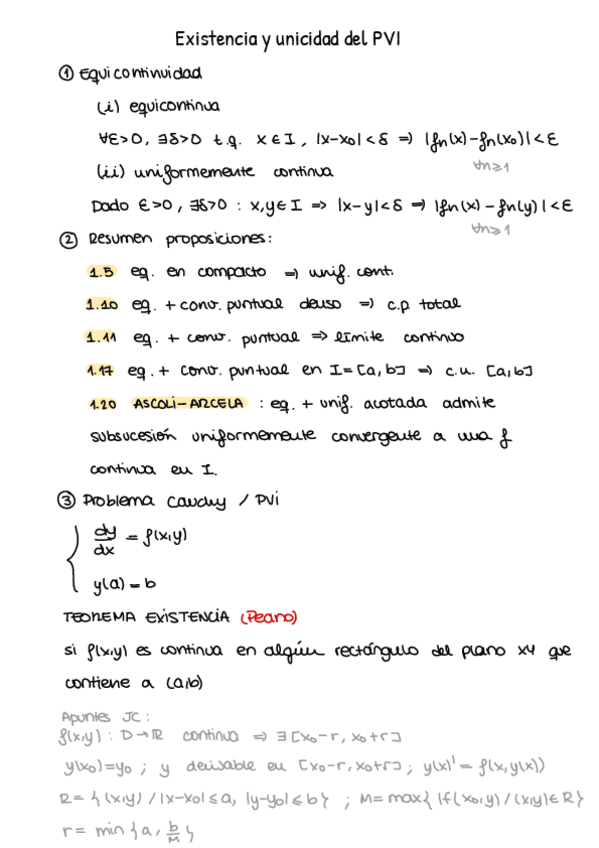 Existencia y unicidad del PVI
① Equicontinuidad
(i) equicontinua
∀ε>0, ∃δ>0 t.q. x∈I, |x-x₀|<δ ⇒ |fn(x)-fn(x₀)|<ε
∀n≥1
(ii) uniformemente continua
Dado ε>0, ∃δ>0 : x,y∈I ⇒ |x-y|<δ ⇒ |fn(x)-fn(y)|<ε
∀n≥1
② Resumen proposiciones:
1.5 eq. en compacto ⇒ unif. cont.
1.10 eq. + conv. puntual denso ⇒ c.p. total
1.11 eq. + conv. puntual ⇒ límite continuo
1.17 eq. + conv. puntual en I=[a,b] ⇒ c.u. [a,b]
1.20 ASCOLI-ARZELA : eq. + unif. acotada admite
subsucesión uniformemente convergente a una f
continua en I.
③ Problema Cauchy / PVI
dy/dx = f(x,y)
y(a) = b
TEOREMA EXISTENCIA (Peano)
si f(x,y) es continua en algún rectángulo del plano XY que
contiene a (a,b)
Apuntes JC:
f(x,y) : D→ℝ continua ⇒ ∃[x₀-r, x₀+r]
y(x₀)=y₀ ; y derivable en [x₀-r,x₀+r] ; y(x)' = f(x,y(x))
R={(x,y) / |x-x₀|≤a, |y-y₀|≤b} ; M=max{|f(x₀,y)/(x,y)∈R}
r = min{a, b/M}